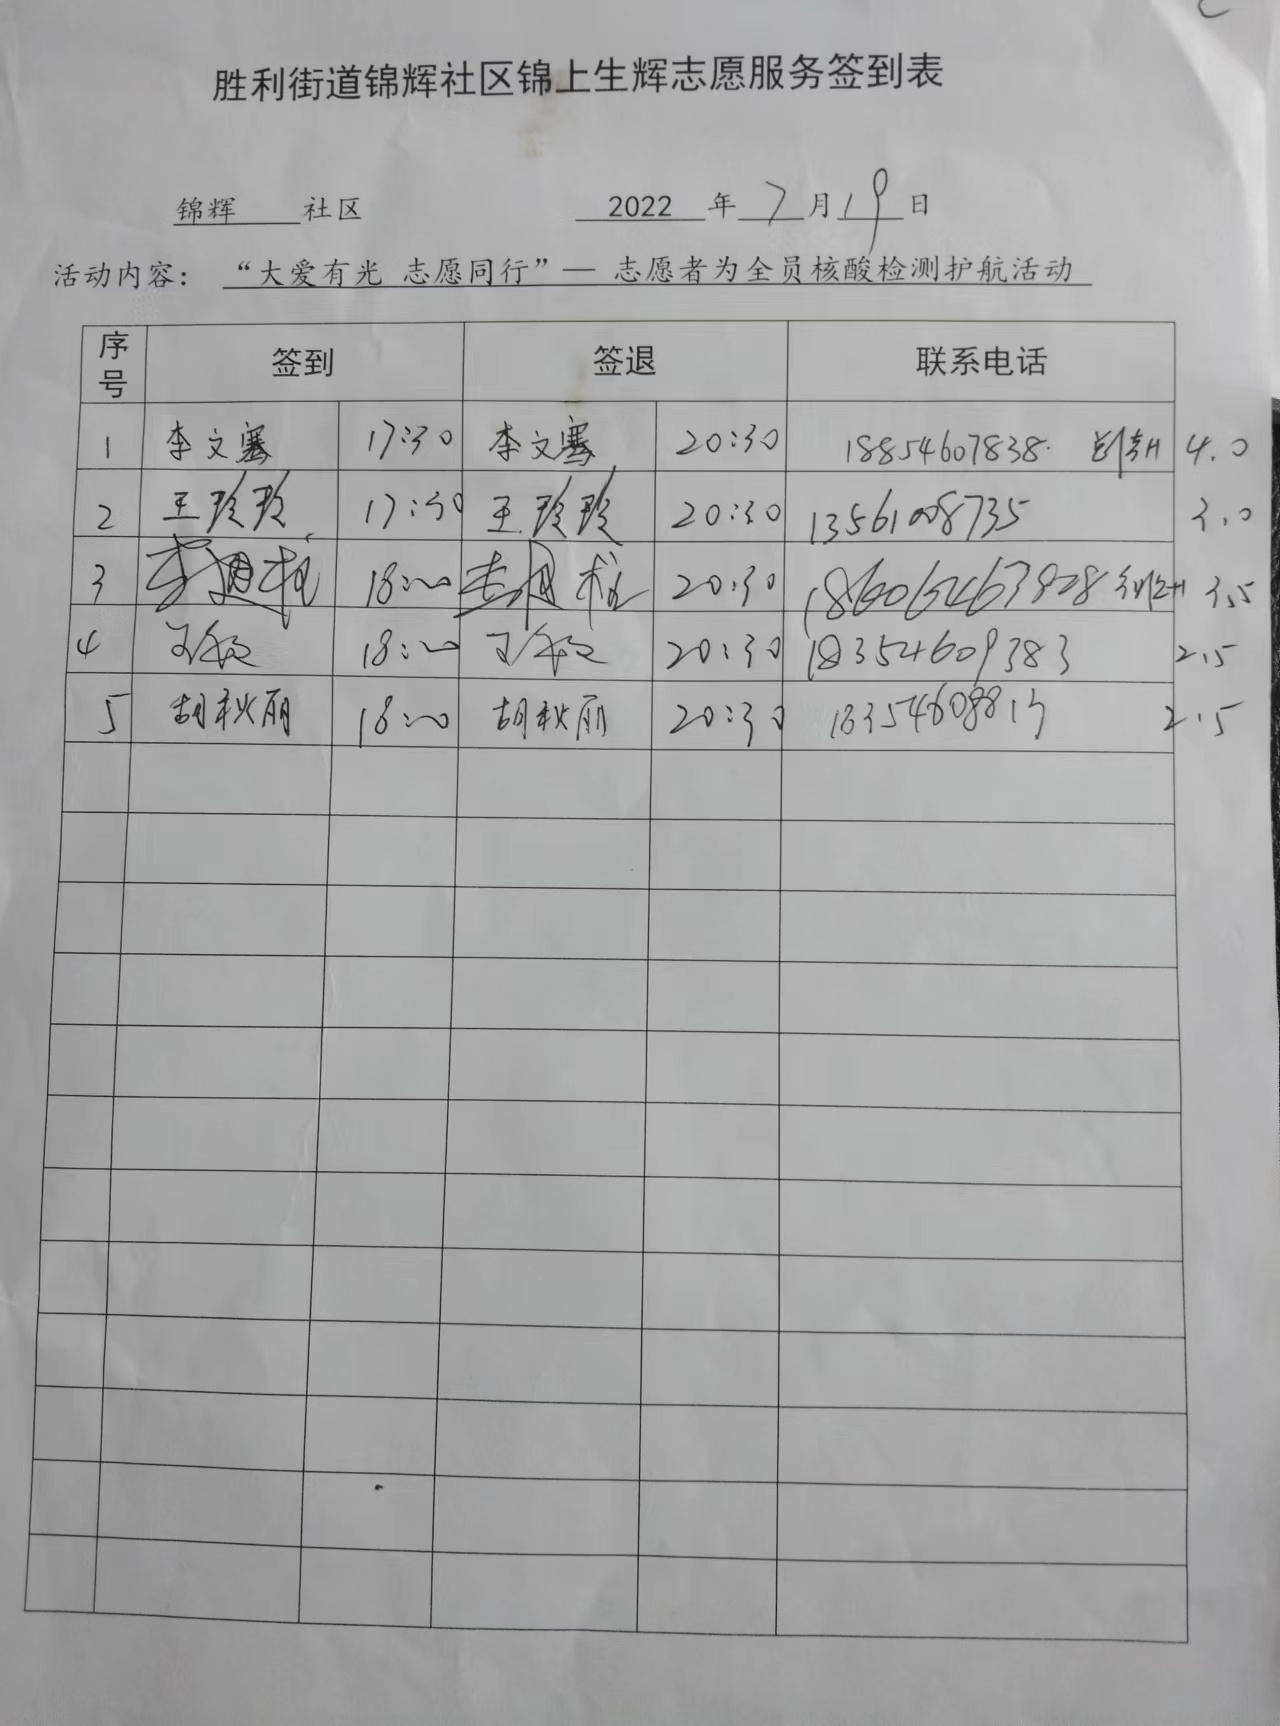 胜利街道锦辉社区锦上生辉志愿服务签到表
锦辉 社区 2022 年 7 月 19 日
活动内容： “大爱有光 志愿同行”— 志愿者为全员核酸检测护航活动
序号 签到 签退 联系电话
1 李文骞 17:30 李文骞 20:30 18854607838. 4.0
2 王玲玲 17:30 王玲玲 20:30 13561008735 3.0
3 18:00 20:30 3.5
4 18:00 20:30 18354609383 2.5
5 胡秋丽 18:00 胡秋丽 20:30 2.5